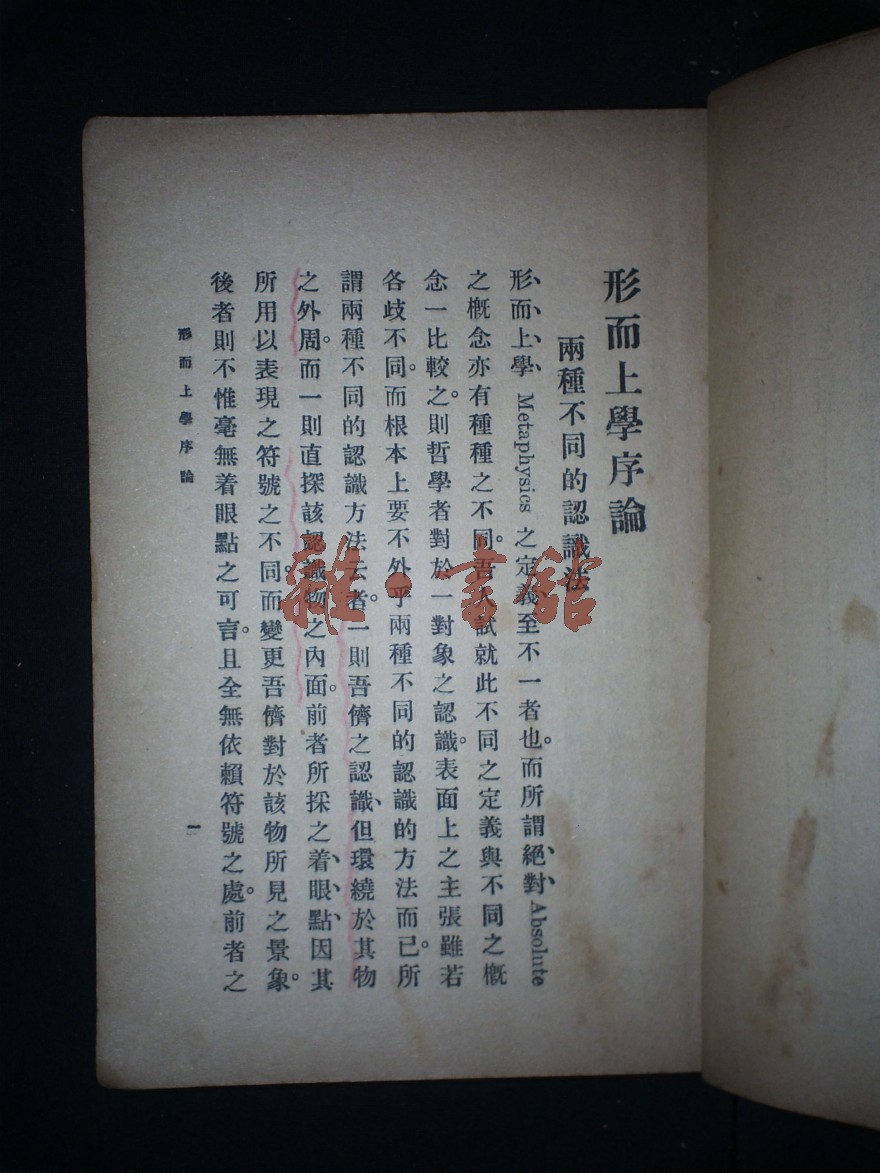 形而上學序論
兩種不同的認識法
形、而、上、學、Metaphysics 之定義、至不一者也。而所謂絕、對、Absolute
之概念亦有種種之不同。吾人試就此不同之定義與不同之概
念一比較之。則哲學者對於一對象之認識。表面上之主張雖若
各歧不同。而根本上要不外乎兩種不同的認識的方法而已。所
謂兩種不同的認識方法云者。一則吾儕之認識、但環繞於其物
之外周。而一則直探該認識物之內面。前者所採之着、眼、點、因其
所用以表現之符號之不同。而變更吾儕對於該物所見之景象。
後者則不惟毫無着眼點之可言。且全無依賴符號之處。前者之
形而上學序論
一
雜·書館